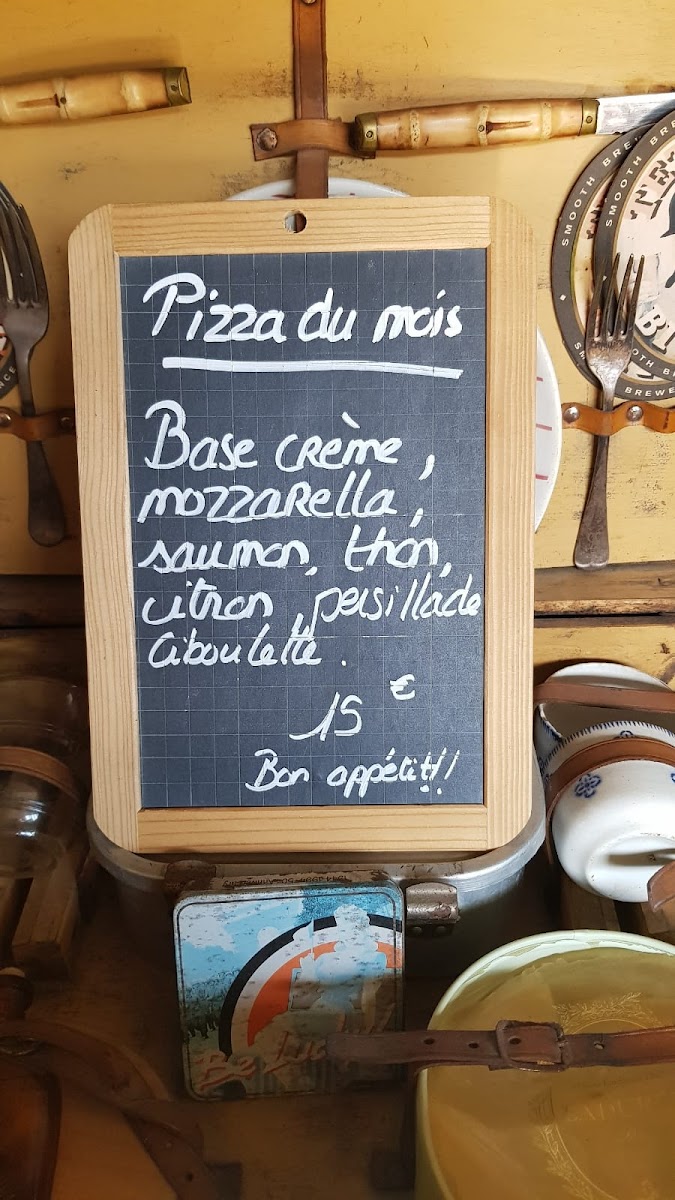 Pizza du mois
Base crème,
mozzarella,
saumon, thon,
citron, persillade
ciboulette.
15 €
Bon appétit!!
SMOOTH BREW
SMOOTH BRE
SMOOTH
BREWE
NCE
Be Lucky!